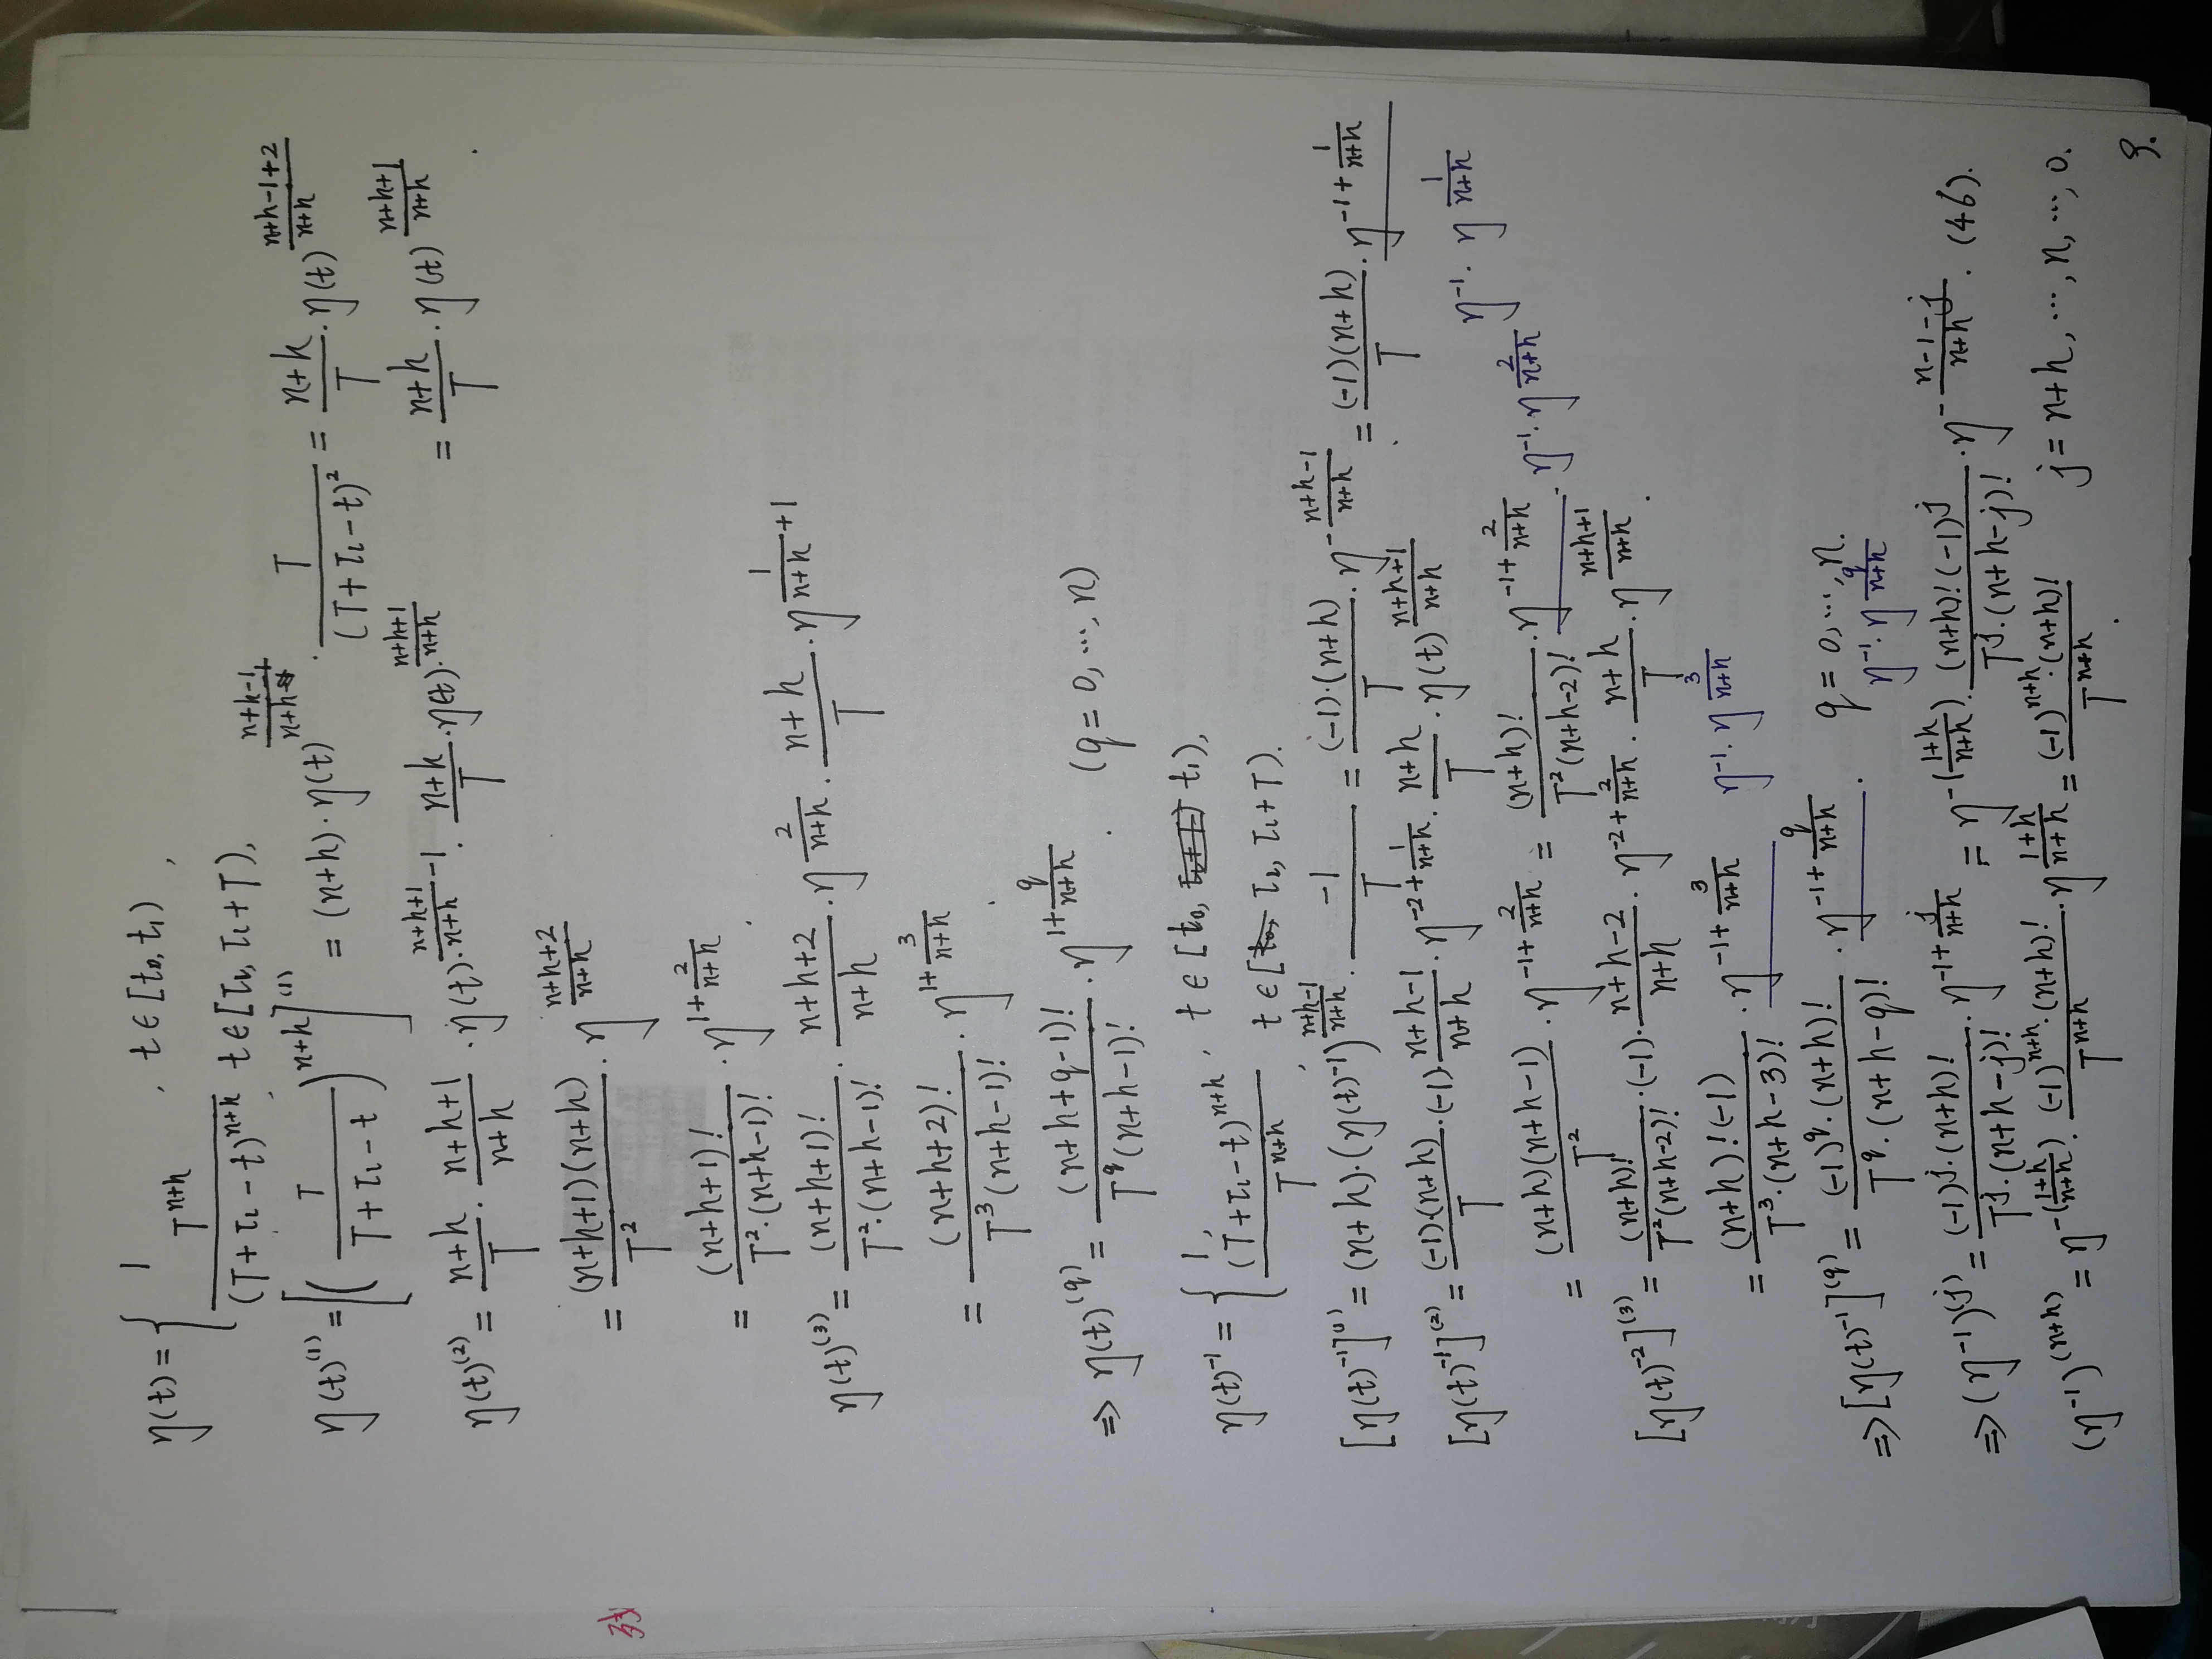 η(t) = { 1, t ∈ [t₀, t₁),
T^{n+h} / (T+τ₁-t)^{n+h}, t ∈ [τ₁, τ₁+T),
η(t)^{(1)} = [ ( T / (T+τ₁-t) )^{n+h} ]^{(1)} = (n+h)·η(t)^{(n+h-1)/(n+h)} · T / (T+τ₁-t)² = (n+h)/T · η(t)^{(n+h-1+2)/(n+h)}
= (n+h)/T · η(t)^{(n+h+1)/(n+h)}.
η(t)^{(2)} = (n+h)/T · (n+h+1)/(n+h) · η(t)^{(n+h+1)/(n+h) -1} · (n+h)/T · η(t)^{(n+h+1)/(n+h)}
= (n+h+1)(n+h)/T² · η^{(n+h+2)/(n+h)}
= (n+h+1)! / (T²·(n+h-1)!) · η^{1+2/(n+h)}.
η(t)^{(3)} = (n+h+1)! / (T²·(n+h-1)!) · (n+h+2)/(n+h) · η^{2/(n+h)} · (n+h)/T · η^{1/(n+h) +1}
= (n+h+2)! / (T³(n+h-1)!) · η^{1+3/(n+h)}.
⇒ η(t)^{(q)} = (n+h+q-1)! / (T^q(n+h-1)!) · η^{1+q/(n+h)}. (q = 0, ⋯, n)
η(t)^{-1} = { 1, t ∈ [t₀, t₁),
(T+τ₁-t)^{n+h} / T^{n+h}, t ∈ [τ₁, τ₁+T).
[η(t)^{-1}]^{(1)} = (n+h)·(η(t)^{-1})^{(n+h-1)/(n+h)} · -1/T = (-1)·(n+h)/T · η^{-(n+h-1)/(n+h)} = (-1)(n+h)/T · η^{-1+1/(n+h)}.
η^{-1}· η^{1/(n+h)}
[η(t)^{-1}]^{(2)} = (-1)·(n+h)/T · (-1)·(n+h-1)/(n+h) · η^{-2+1/(n+h)} · (n+h)/T · η(t)^{(n+h+1)/(n+h)}
= (n+h)(n+h-1)/T² · η^{-1+2/(n+h)} = (n+h)! / (T²(n+h-2)!) · η^{-1+2/(n+h)}. η^{-1}· η^{2/(n+h)}
[η(t)^{-2}]^{(3)} = (n+h)! / (T²(n+h-2)!) · (-1)· (n+h-2)/(n+h) · η^{-2+2/(n+h)} · (n+h)/T · η^{(n+h+1)/(n+h)}.
= (n+h)!(-1) / (T³·(n+h-3)!) · η^{-1+3/(n+h)} η^{-1}· η^{3/(n+h)}
⇒ [η(t)^{-1}]^{(q)} = (-1)^q·(n+h)! / (T^q·(n+h-q)!) · η^{-1+q/(n+h)}. q = 0, ⋯, n.
η^{-1}· η^{q/(n+h)}
⇒ (η^{-1})^{(j)} = (-1)^j·(n+h)! / (T^j·(n+h-j)!) · η^{-1+j/(n+h)} = η^{-((1+h)/(n+h))} · (n+h)!(-1)^j / (T^j·(n+h-j)!) · η^{-(n-1-j)/(n+h)}. (46).
(η^{-1})^{(n+h)} = η^{-((1+h)/(n+h))} · (-1)^{n+h}·(n+h)! / T^{n+h} · η^{(1+h)/(n+h)} = (-1)^{n+h}·(n+h)! / T^{n+h}. j = n+h, ⋯, n, ⋯, 0.
9.